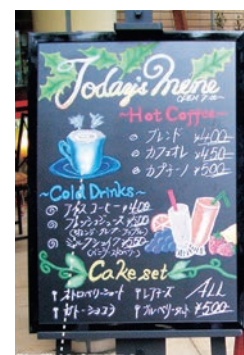 Today's mene
OPEN
~Hot Coffee~
◎ ブレンド ¥400
◎ カフェオレ ¥450
◎ カプチーノ ¥500
~Cold Drinks~
◎ アイスコーヒー ¥400
◎ フレッシュジュース ¥500
◎ ミルクシェイク ¥550
Cake set
ストロベリーショート レアチーズ ALL
ガトーショコラ ブルーベリータルト ¥500